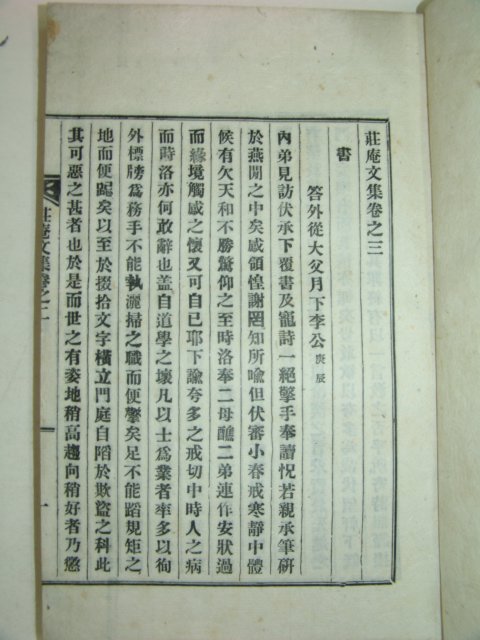 莊庵文集卷之三
書
答外從大父月下李公 庚辰
內弟見訪伏承下覆書及寵詩一絕擎手奉讀怳若親承筆硏
於燕閒之中矣感領惶謝罔知所喩但伏審小春戒寒靜中體
候有欠天和不勝驚仰之至時洛奉二母醮二弟連作安狀過
而緣境觸感之懷又可自已耶下諭夸多之戒切中時人之病
而時洛亦何敢辭也盖自道學之壞凡以士爲業者率多以徇
外標勝爲務手不能執灑掃之職而便擧矣足不能蹈規矩之
地而便踞矣以至於掇拾文字橫立門庭自陷於欺盜之科此
其可惡之甚者也於是而世之有姿地稍高趨向稍好者乃懲
莊庵文集卷之三
一